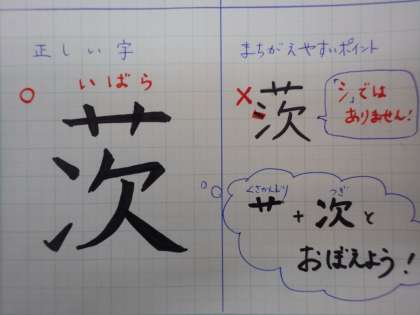 正しい字
いばら
○
茨
まちがえやすいポイント
×
茨
「シ」では
ありません!
くさかんむり つぎ
艹+次と
おぼえよう!